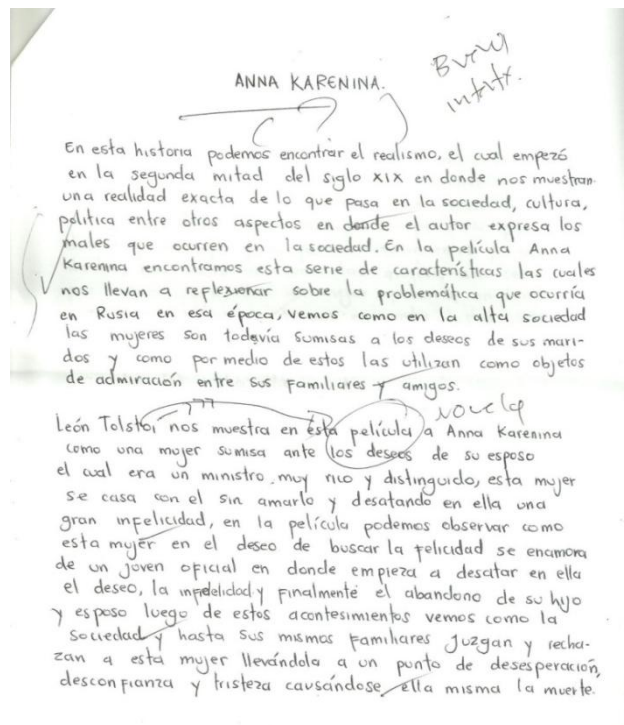 ANNA KARENINA.
Buen
intento.
En esta historia podemos encontrar el realismo, el cual empezó
en la segunda mitad del siglo XIX en donde nos muestran
una realidad exacta de lo que pasa en la sociedad, cultura,
política entre otros aspectos en donde el autor expresa los
males que ocurren en la sociedad. En la película Anna
Karenina encontramos esta serie de características las cuales
nos llevan a reflexionar sobre la problemática que ocurría
en Rusia en esa época, vemos como en la alta sociedad
las mujeres son todavía sumisas a los deseos de sus mari-
dos y como por medio de estos las utilizan como objetos
de admiración entre sus familiares y amigos.
novela
León Tolstoi nos muestra en ésta película a Anna Karenina
como una mujer sumisa ante los deseos de su esposo
el cual era un ministro muy rico y distinguido, esta mujer
se casa con el sin amarlo y desatando en ella una
gran infelicidad, en la película podemos observar como
esta mujer en el deseo de buscar la felicidad se enamora
de un joven oficial en donde empieza a desatar en ella
el deseo, la infidelidad y finalmente el abandono de su hijo
y esposo luego de estos acontesimientos vemos como la
sociedad y hasta sus mismos familiares juzgan y recha-
zan a esta mujer llevándola a un punto de desesperación,
desconfianza y tristeza causándose ella misma la muerte.